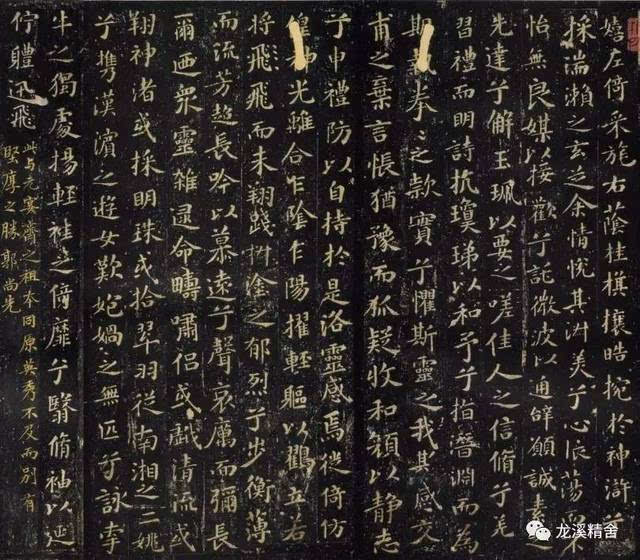 嬉左倚采旄右蔭桂旗攘皓捥於神滸兮
採湍瀨之玄芝余情悅其淑美兮心振蕩而
怡無良媒以接歡兮託微波以通辭願誠素
先達兮解玉珮以要之嗟佳人之信脩兮羌
習禮而明詩抗瓊珶以和予兮指潛淵而為
期拳=之款實兮懼斯靈之我其感交
甫之棄言悵猶豫而狐疑收和顏以靜志
兮申禮防以自持於是洛靈感焉徙倚仿
神光離合乍陰乍陽擢輕軀以鶴立若
將飛飛而未翔踐椒塗之郁烈兮步衡薄
而流芳超長吟以慕遠兮聲哀厲而彌長
爾迺眾靈雜遝命疇嘯侶或戲清流或
翔神渚或採明珠或拾翠羽從南湘之二姚
兮攜漢濱之遊女歎匏媧之無匹兮詠牽
牛之獨處揚輕袿之倚靡兮翳脩袖以延
佇體迅飛
此与元宴齋之祖本同原興秀不及而別有
堅厚之勝郭尚先
龙溪精舍